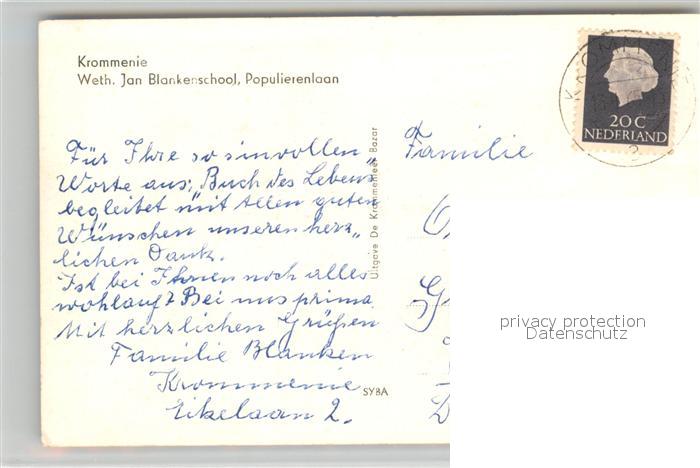 Krommenie
Weth. Jan Blankenschool, Populierenlaan
Für Ihre so sinvollen
Worte aus: „Buch des Lebens"
begleitet mit allen guten
Wünschen unseren herz„
lichen Dank.
Ist bei Ihnen noch alles
wohlauf? Bei uns prima.
Mit herzlichen Grüßen
Familie Blanken
Krommenie
Eikelaan 2.
Uitgave De Krommenieer Bazar
SYBA
Familie
20 C
NEDERLAND
privacy protection
Datenschutz